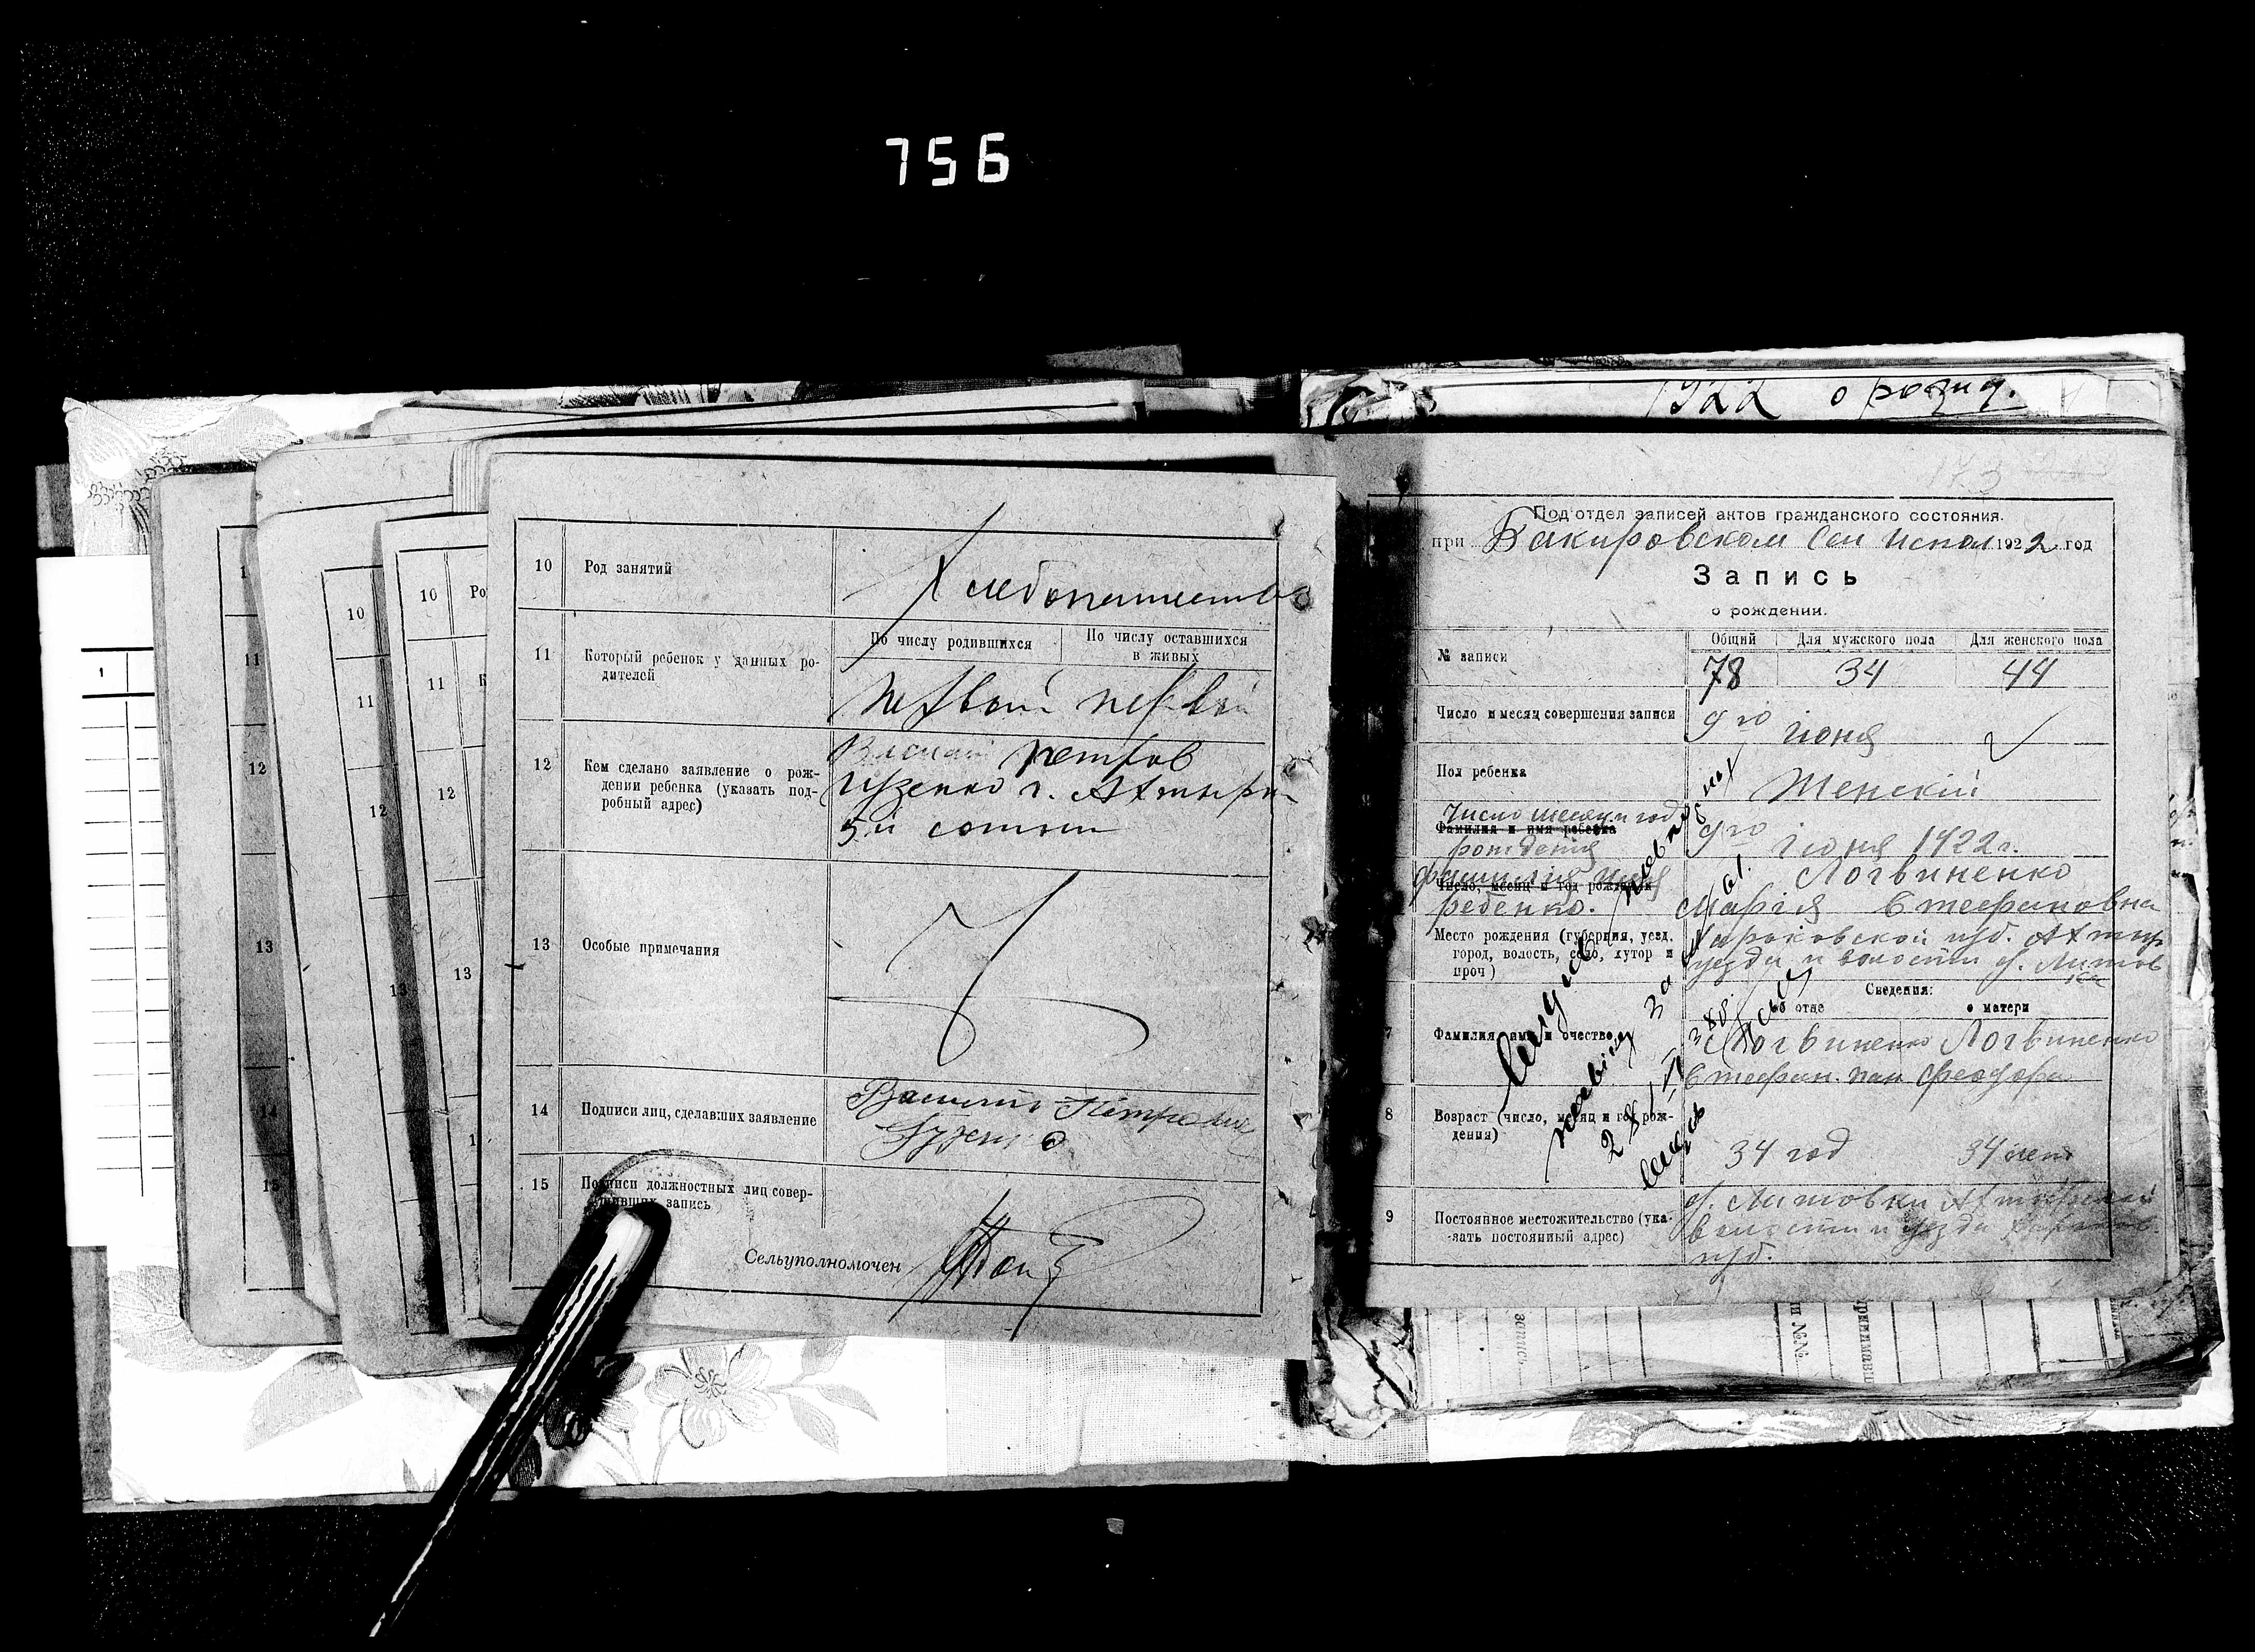 756
1922 о рожд.
10 Род занятий
Хлебопашество
11 Который ребенок у данных ро-
дителей
По числу родившихся
По числу оставшихся
в живых
первый первый
12 Кем сделано заявление о рож-
дении ребенка (указать под-
робный адрес)
Василий Петров
Гузенко г. Ахтырки
5й сотни
13 Особые примечания
14 Подписи лиц, сделавших заявление
Василий Петрович
Гузенко
15 Подписи должностных лиц совер-
шивших запись
Сельуполномочен
10 Ро
11
12
13
10
11
12
13
11
12
13
14
15
1
173
Под'отдел записей актов гражданского состояния.
при Бакировском Сел Испол 1922 год
Запись
о рождении.
№ записи
Общий Для мужского пола Для женского пола
78 34 44
Число и месяц совершения записи
9го июня
Пол ребенка
Женскій
Число месяц и год
Фамилия и имя ребенка
рождения
9го іюня 1922 г.
фамилия имя
Число, месяц и год рождения
ребенко.
Логвиненко
Марія Стефановна
Место рождения (губерния, уезд,
город, волость, село, хутор и
проч)
Харьковской губ. Ахтыр
уезда и волости х. Литов
ка
Сведения:
об отце о матери
7 Фамилия, имя и очество
Логвиненко Логвиненко
Стефан. пан Феодора
8 Возраст (число, месяц и год рож-
дения)
34 год 34 лет
9 Постоянное местожительство (ука-
зать постоянный адрес)
х. Литовки Ахтырской
волости и уезда Харьков.
губ.
запись
и №№